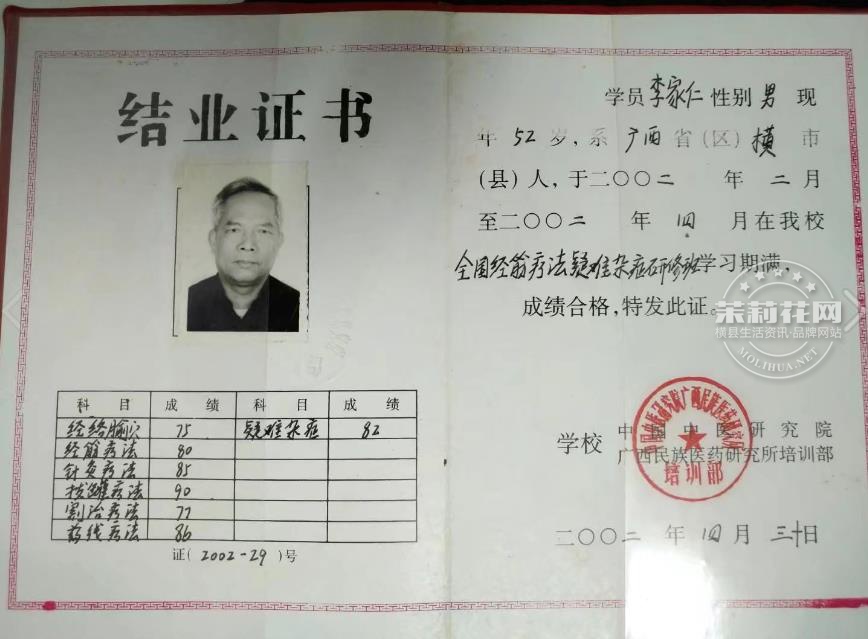 结业证书
科目 成绩 科目 成绩
经络腧穴 75 疑难杂症 82
经筋疗法 80
针灸疗法 85
拔罐疗法 90
割治疗法 77
药线疗法 86
证(2002-29)号
学员李家仁性别男现
年52岁,系广西省(区)横市
(县)人,于二〇〇二年二月
至二〇〇二年四月在我校
全国经筋疗法疑难杂症研修班学习期满、
成绩合格,特发此证。
学校 中国中医研究院
广西民族医药研究所培训部
培训部
二〇〇二年四月三十日
茉莉花网
横县生活资讯·品牌网站
MOLIHUA.NET